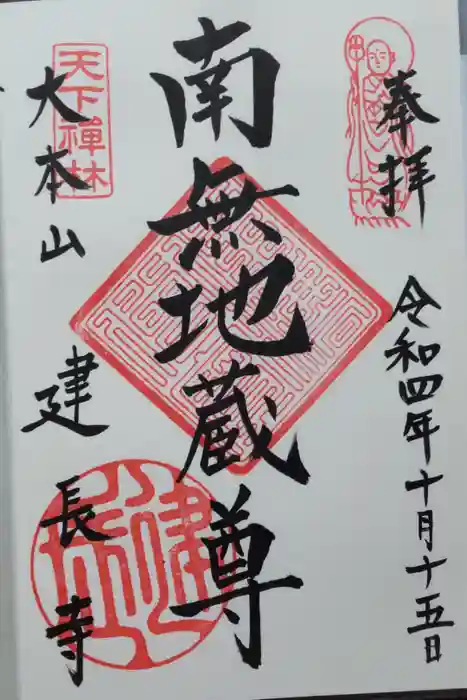 奉拝
令和四年十月十五日
南無地蔵尊
天下禅林
大本山
建長寺